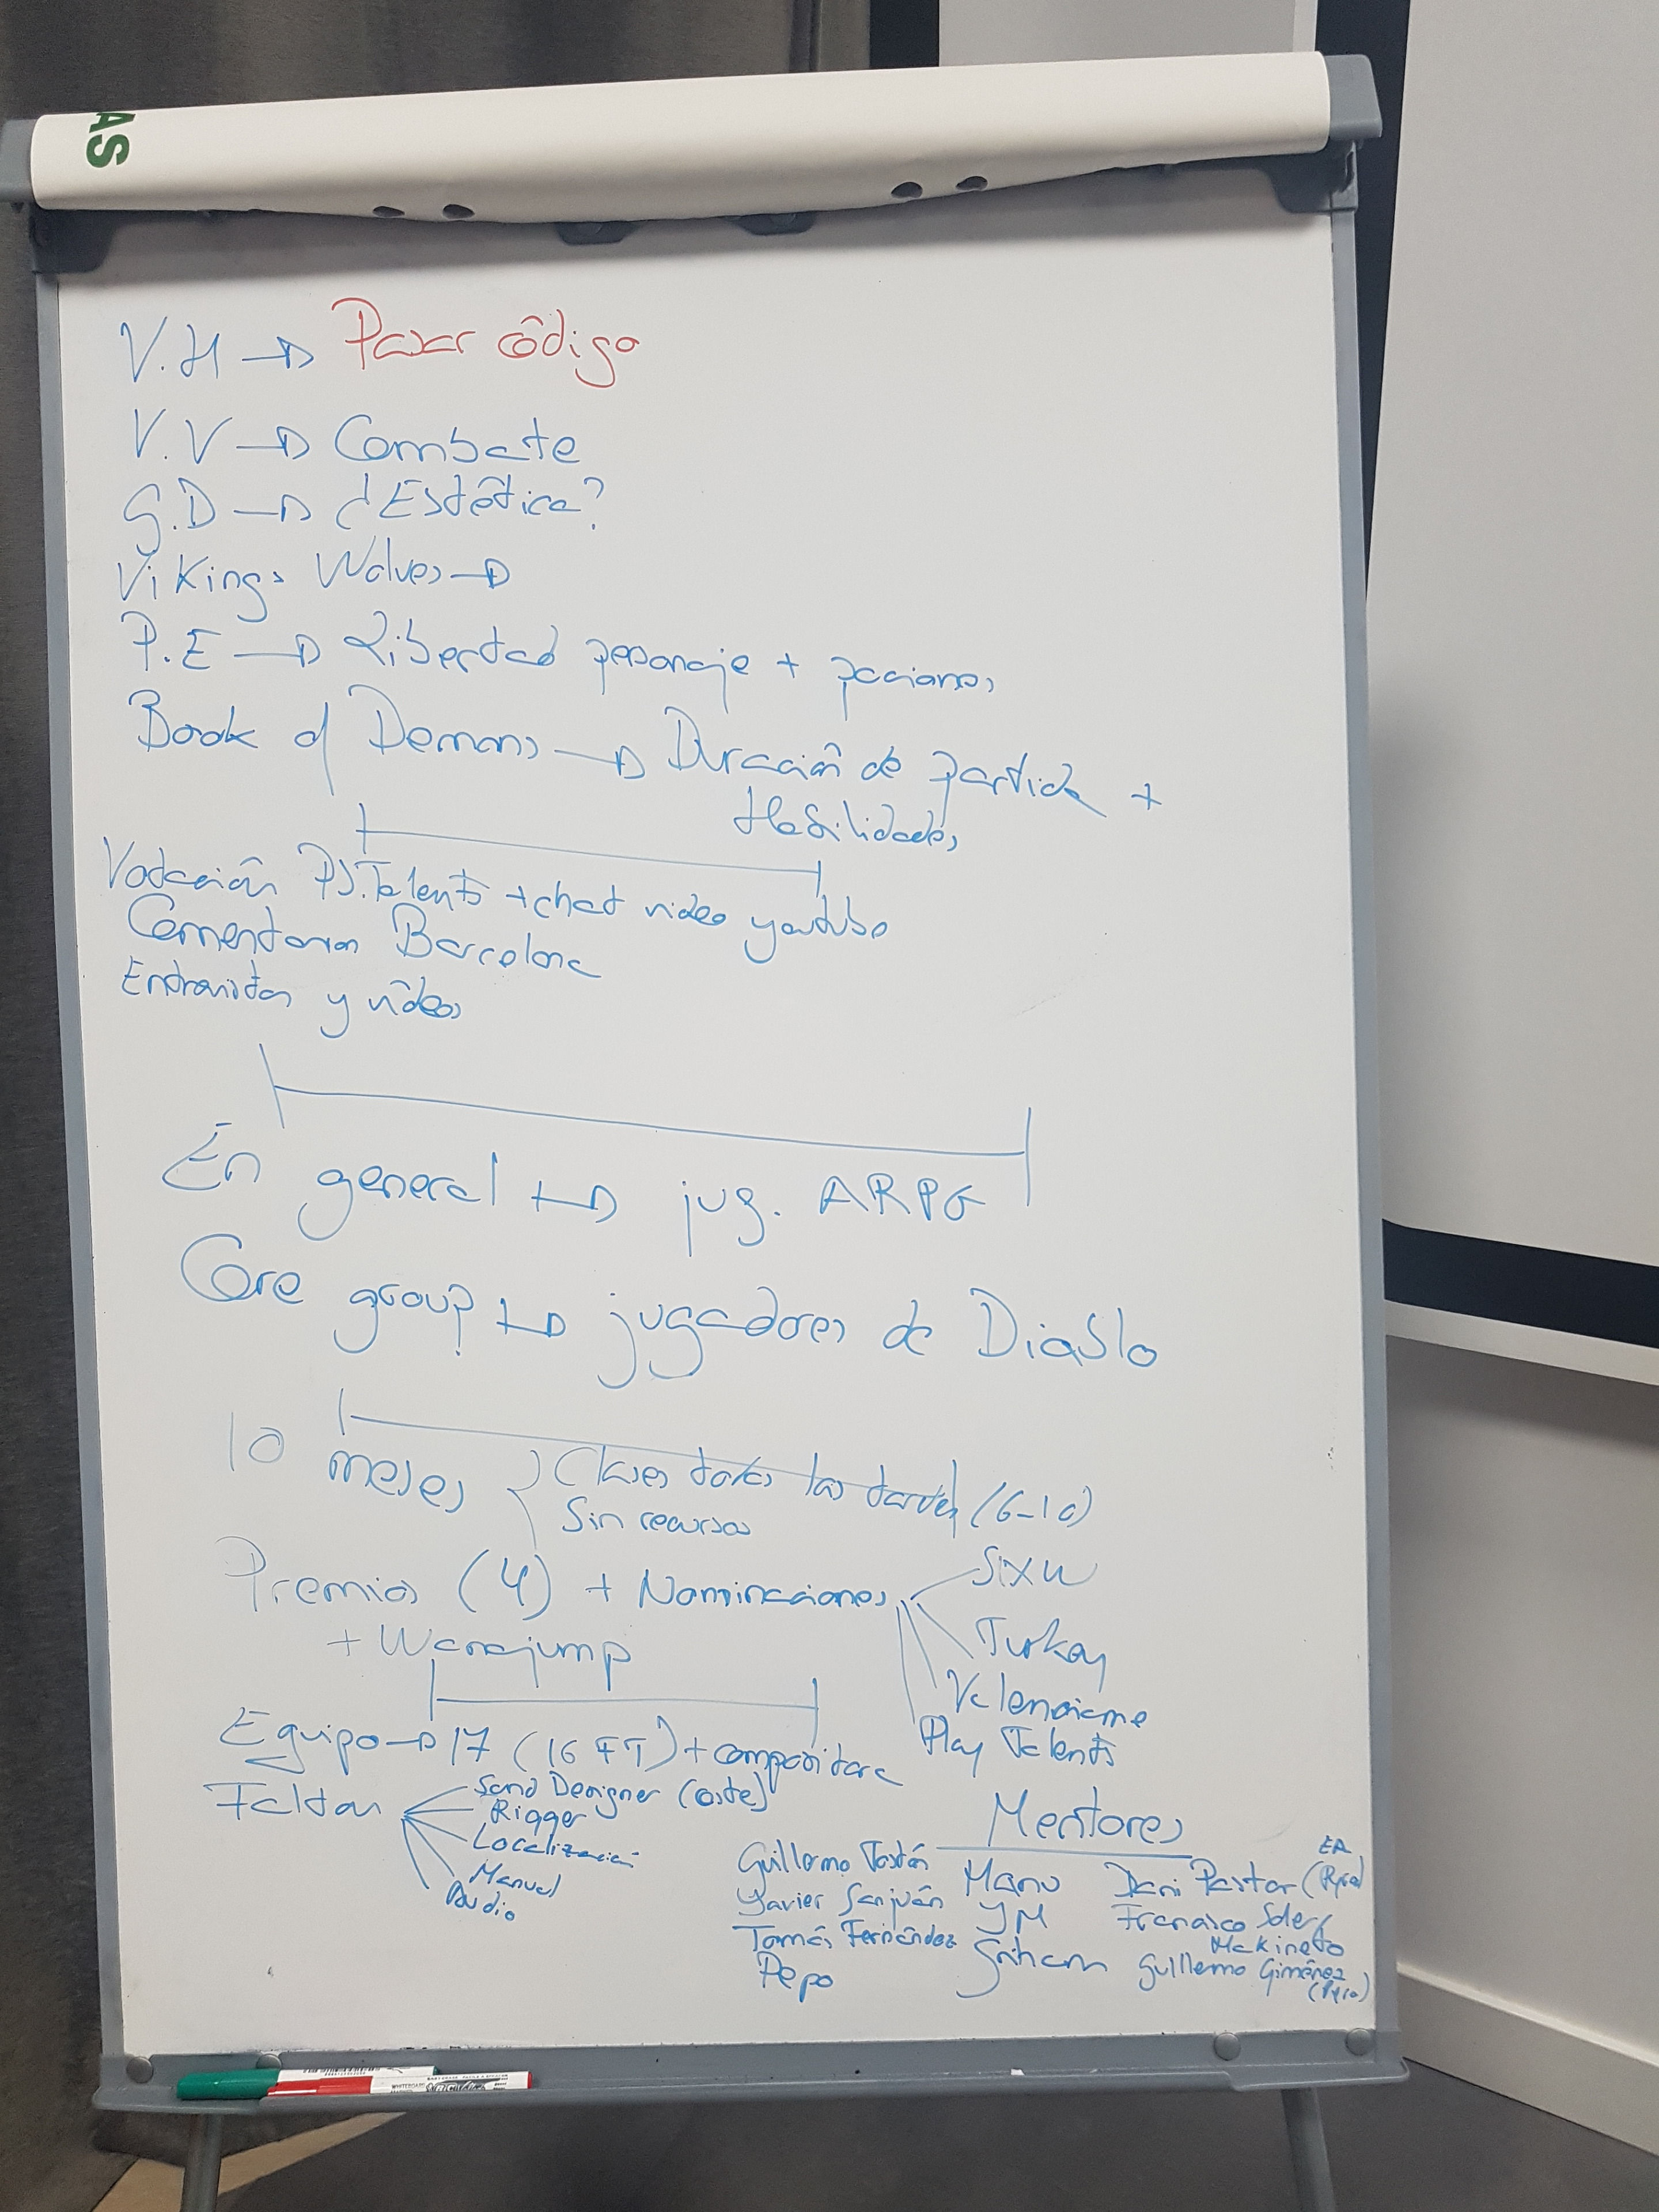 AS
V.H → Pasar código
V.V → Combate
G.D → ¿Estética?
Vikings Wolves →
P.E → Libertad personaje + pociones
Book of Demons → Duración de partida +
Habilidades
Votación PS.Talents + chat video youtube
Comentarios Barcelona
Entrevistas y vídeos
En general → jug. ARPG
Core group → jugadores de Diablo
10 meses
Clases todas las tardes (6-10)
Sin recursos
Premios (4) + Nominaciones
+ Wanajump
Turkey
Play Talents
Equipo → 17 (16 FT) + compositora
Faltan
Sound Designer (coste)
Rigger
Localización
Manual
Audio
Mentores
Guillermo Tostón
Javier Sanjuán
Tomás Fernández
Pepo
Manu
JM
Dani Pastor
EA
Francisco Soler
Mekineto
Guillermo Giménez